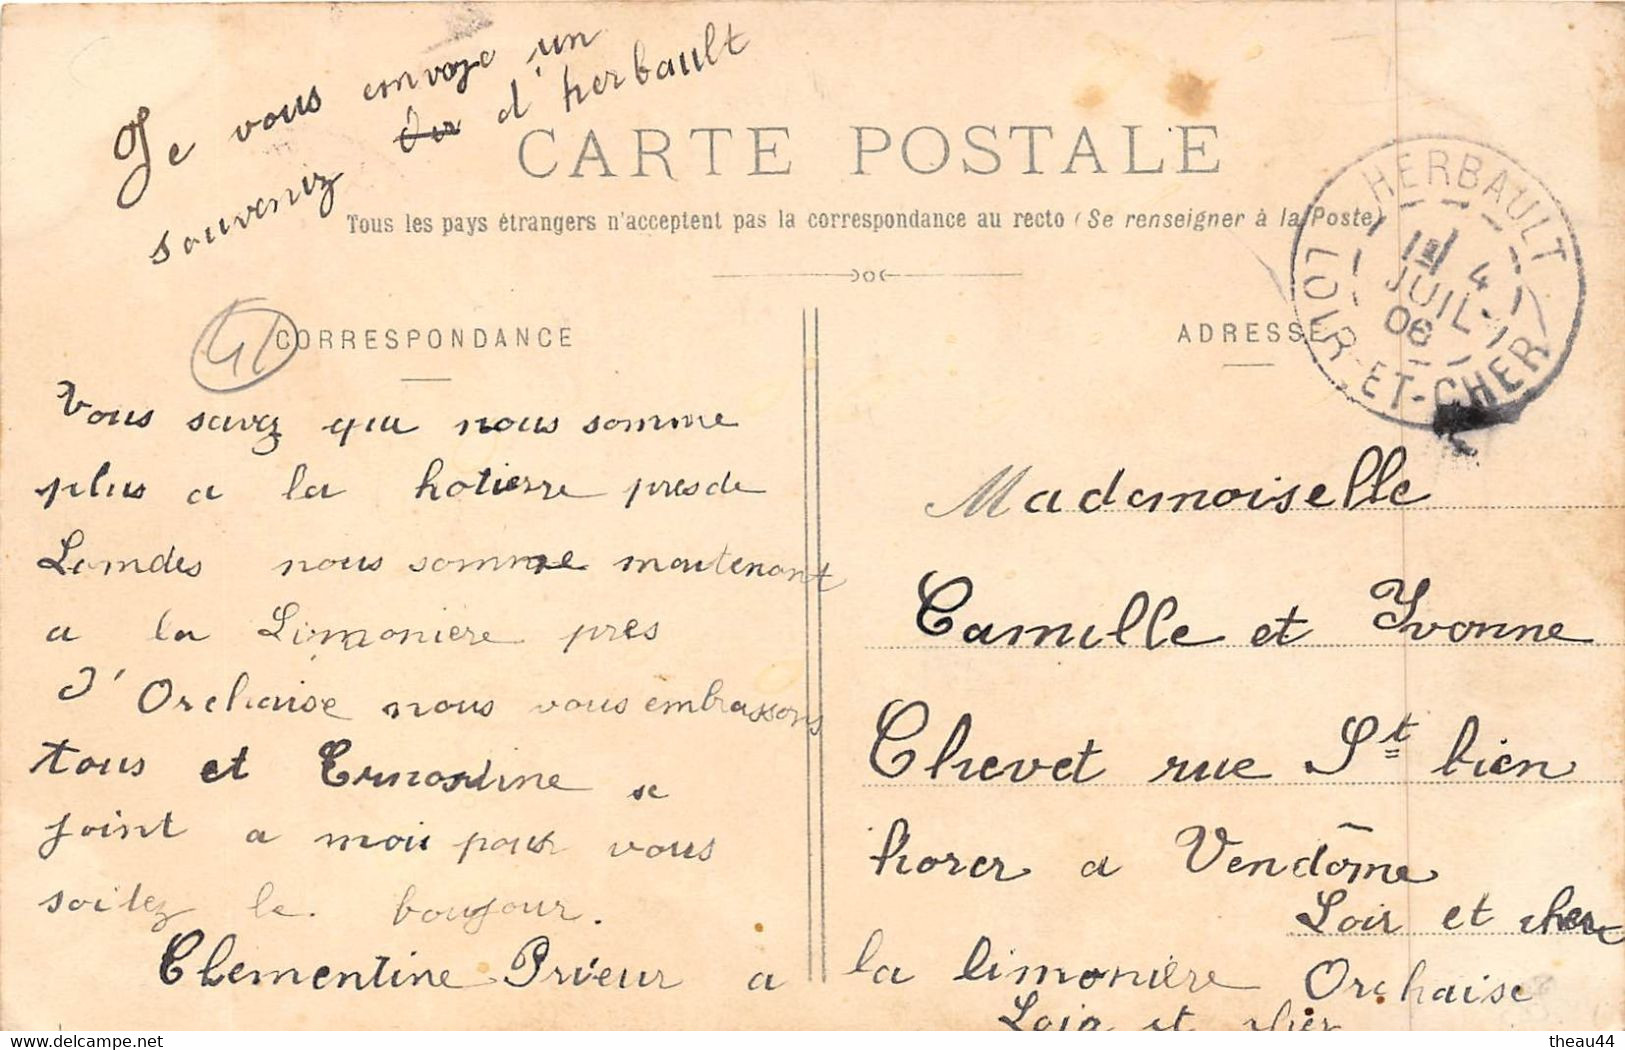 Je vous envoye un
souvenir d'herbault
CARTE POSTALE
Tous les pays étrangers n'acceptent pas la correspondance au recto (Se renseigner à la Poste)
HERBAULT
4
JUIL
06
LOIR-ET-CHER
41
CORRESPONDANCE
Vous savez que nous somme
plus a la hotierre pres de
Lamdes nous somme maintenant
a la Limoniere pres
d'Orchaise nous vous embrassons
tous et Ernostine se
joint a moi pour vous
soitez le boujour.
Clementine Prieur a la limonière Orchaise
Loir et cher
ADRESSE
Mademoiselle
Camille et Yvonne
Chevet rue St bien
horer a Vendôme
Loir et cher
www.delcampe.net
theau44